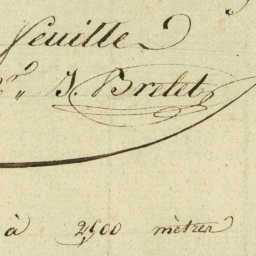 feuille
J. Brelet
à 2500 mètres